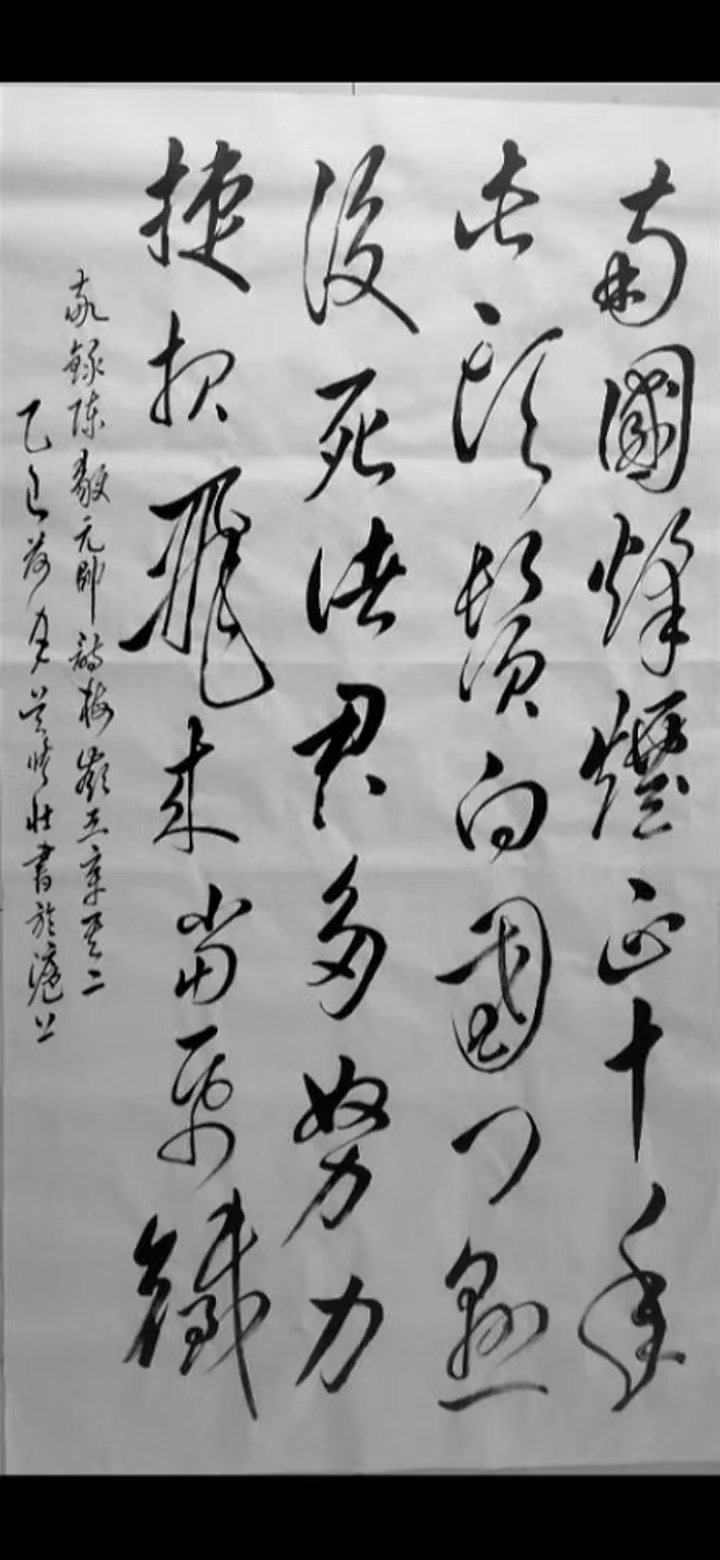 南國烽煙正十年
此頭鬚向國門懸
後死诸君多努力
捷报飛来當帋錢
敬録陈毅元帥詩梅嶺三章之二
乙巳荷月書於滬上